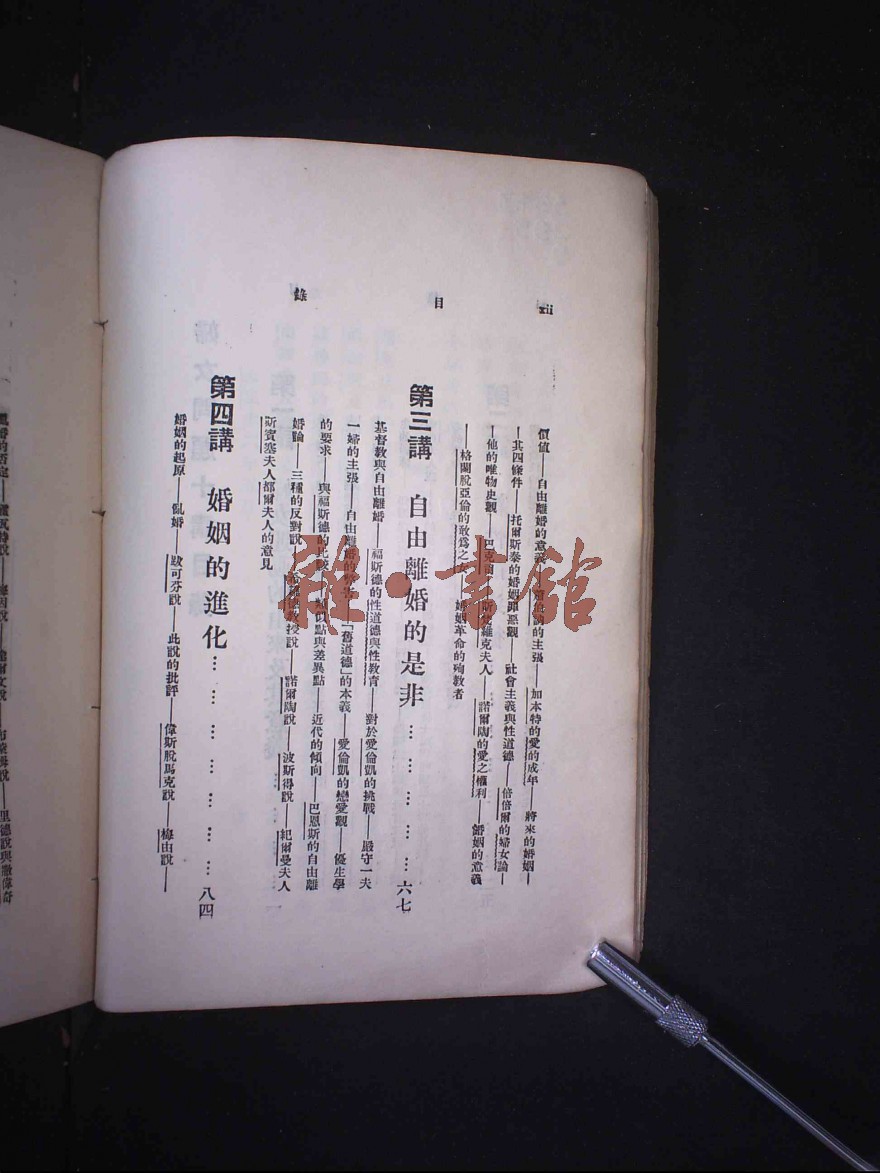 xii
目
錄
價值——自由離婚的意義——的主張——加本特的愛的成年——將來的婚姻——
——其四條件——托爾斯泰的婚姻罪惡觀——社會主義與性道德——倍倍爾的婦女論——
——他的唯物史觀——維克夫人——諾爾陶的愛之權利——婚姻的意義
——格蘭脫亞倫的敢爲之——婚姻革命的殉教者
第三講 自由離婚的是非…………………六七
基督教與自由離婚——福斯德的性道德與性教育——對於愛倫凱的挑戰——嚴守一夫
一婦的主張——自由離婚的——「舊道德」的本義——愛倫凱的戀愛觀——優生學
的要求——與福斯德的比較——類似點與差異點——近代的傾向——巴恩斯的自由離
婚論——三種的反對說——教授說——諾爾陶說——波斯得說——紀爾曼夫人
斯賓塞夫人都爾夫人的意見
第四講 婚姻的進化…………………八四
婚姻的起原——亂婚——跋可芬說——此說的批評——偉斯脫馬克說——梅由說——
雜·書館